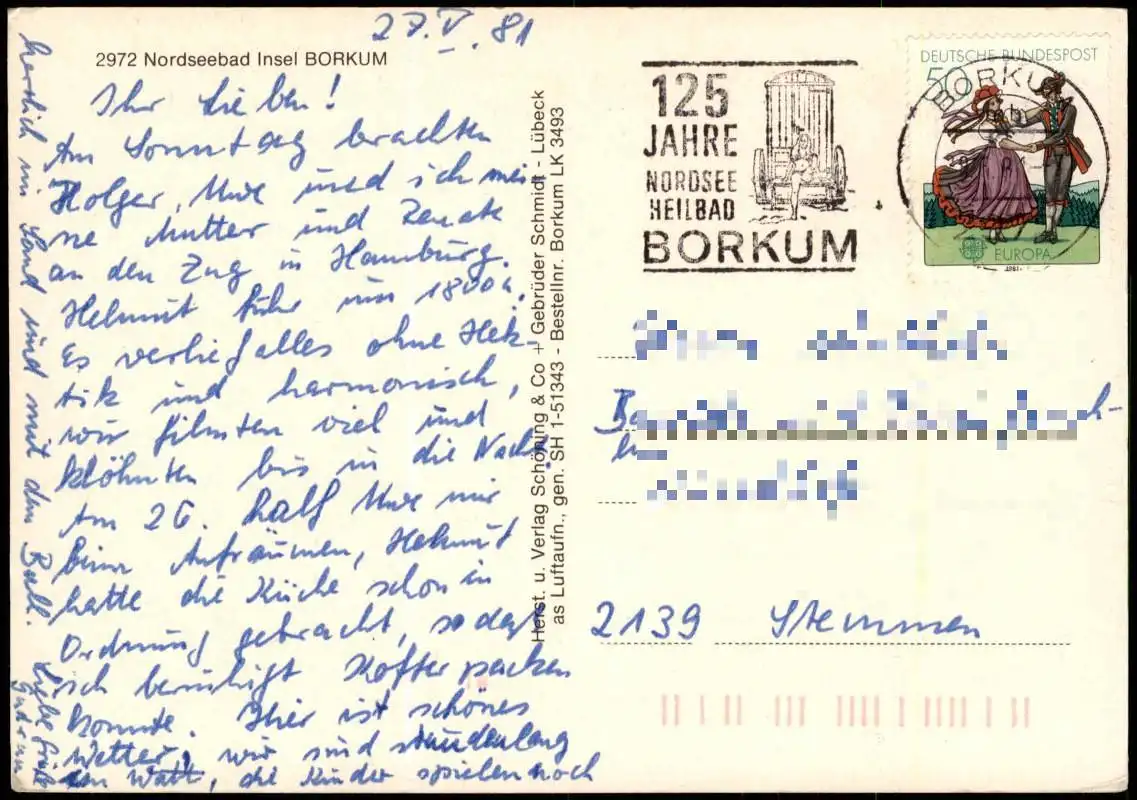 27.V.81
2972 Nordseebad Insel BORKUM
Ihr Lieben!
Am Sonntag brachten
Holger, Uwe und ich mei-
ne Mutter und Renate
an den Zug in Hamburg.
Helmut fuhr um 1800h.
Es verlief alles ohne Hek-
tik und harmonisch,
wir filmten viel und
klöhnten bis in die Nacht.
Am 26. half Uwe mir
beim Aufräumen, Helmut
hatte die Küche schon in
Ordnung gebracht, sodaß
ich beruhigt Koffer packen
konnte. Hier ist schönes
Wetter, wir sind stundenlang
im Watt, die Kinder spielen noch
herrlich im Sand und mit dem Ball.
Liebe Grüße
Gudrun
Herst. u. Verlag Schöning & Co + Gebrüder Schmidt - Lübeck
as Luftaufn., gen. SH 1-51343 - Bestellnr. Borkum LK 3493
125
JAHRE
NORDSEE
HEILBAD
BORKUM
DEUTSCHE BUNDESPOST
BORKUM
EUROPA
1981
2139 Stemmen